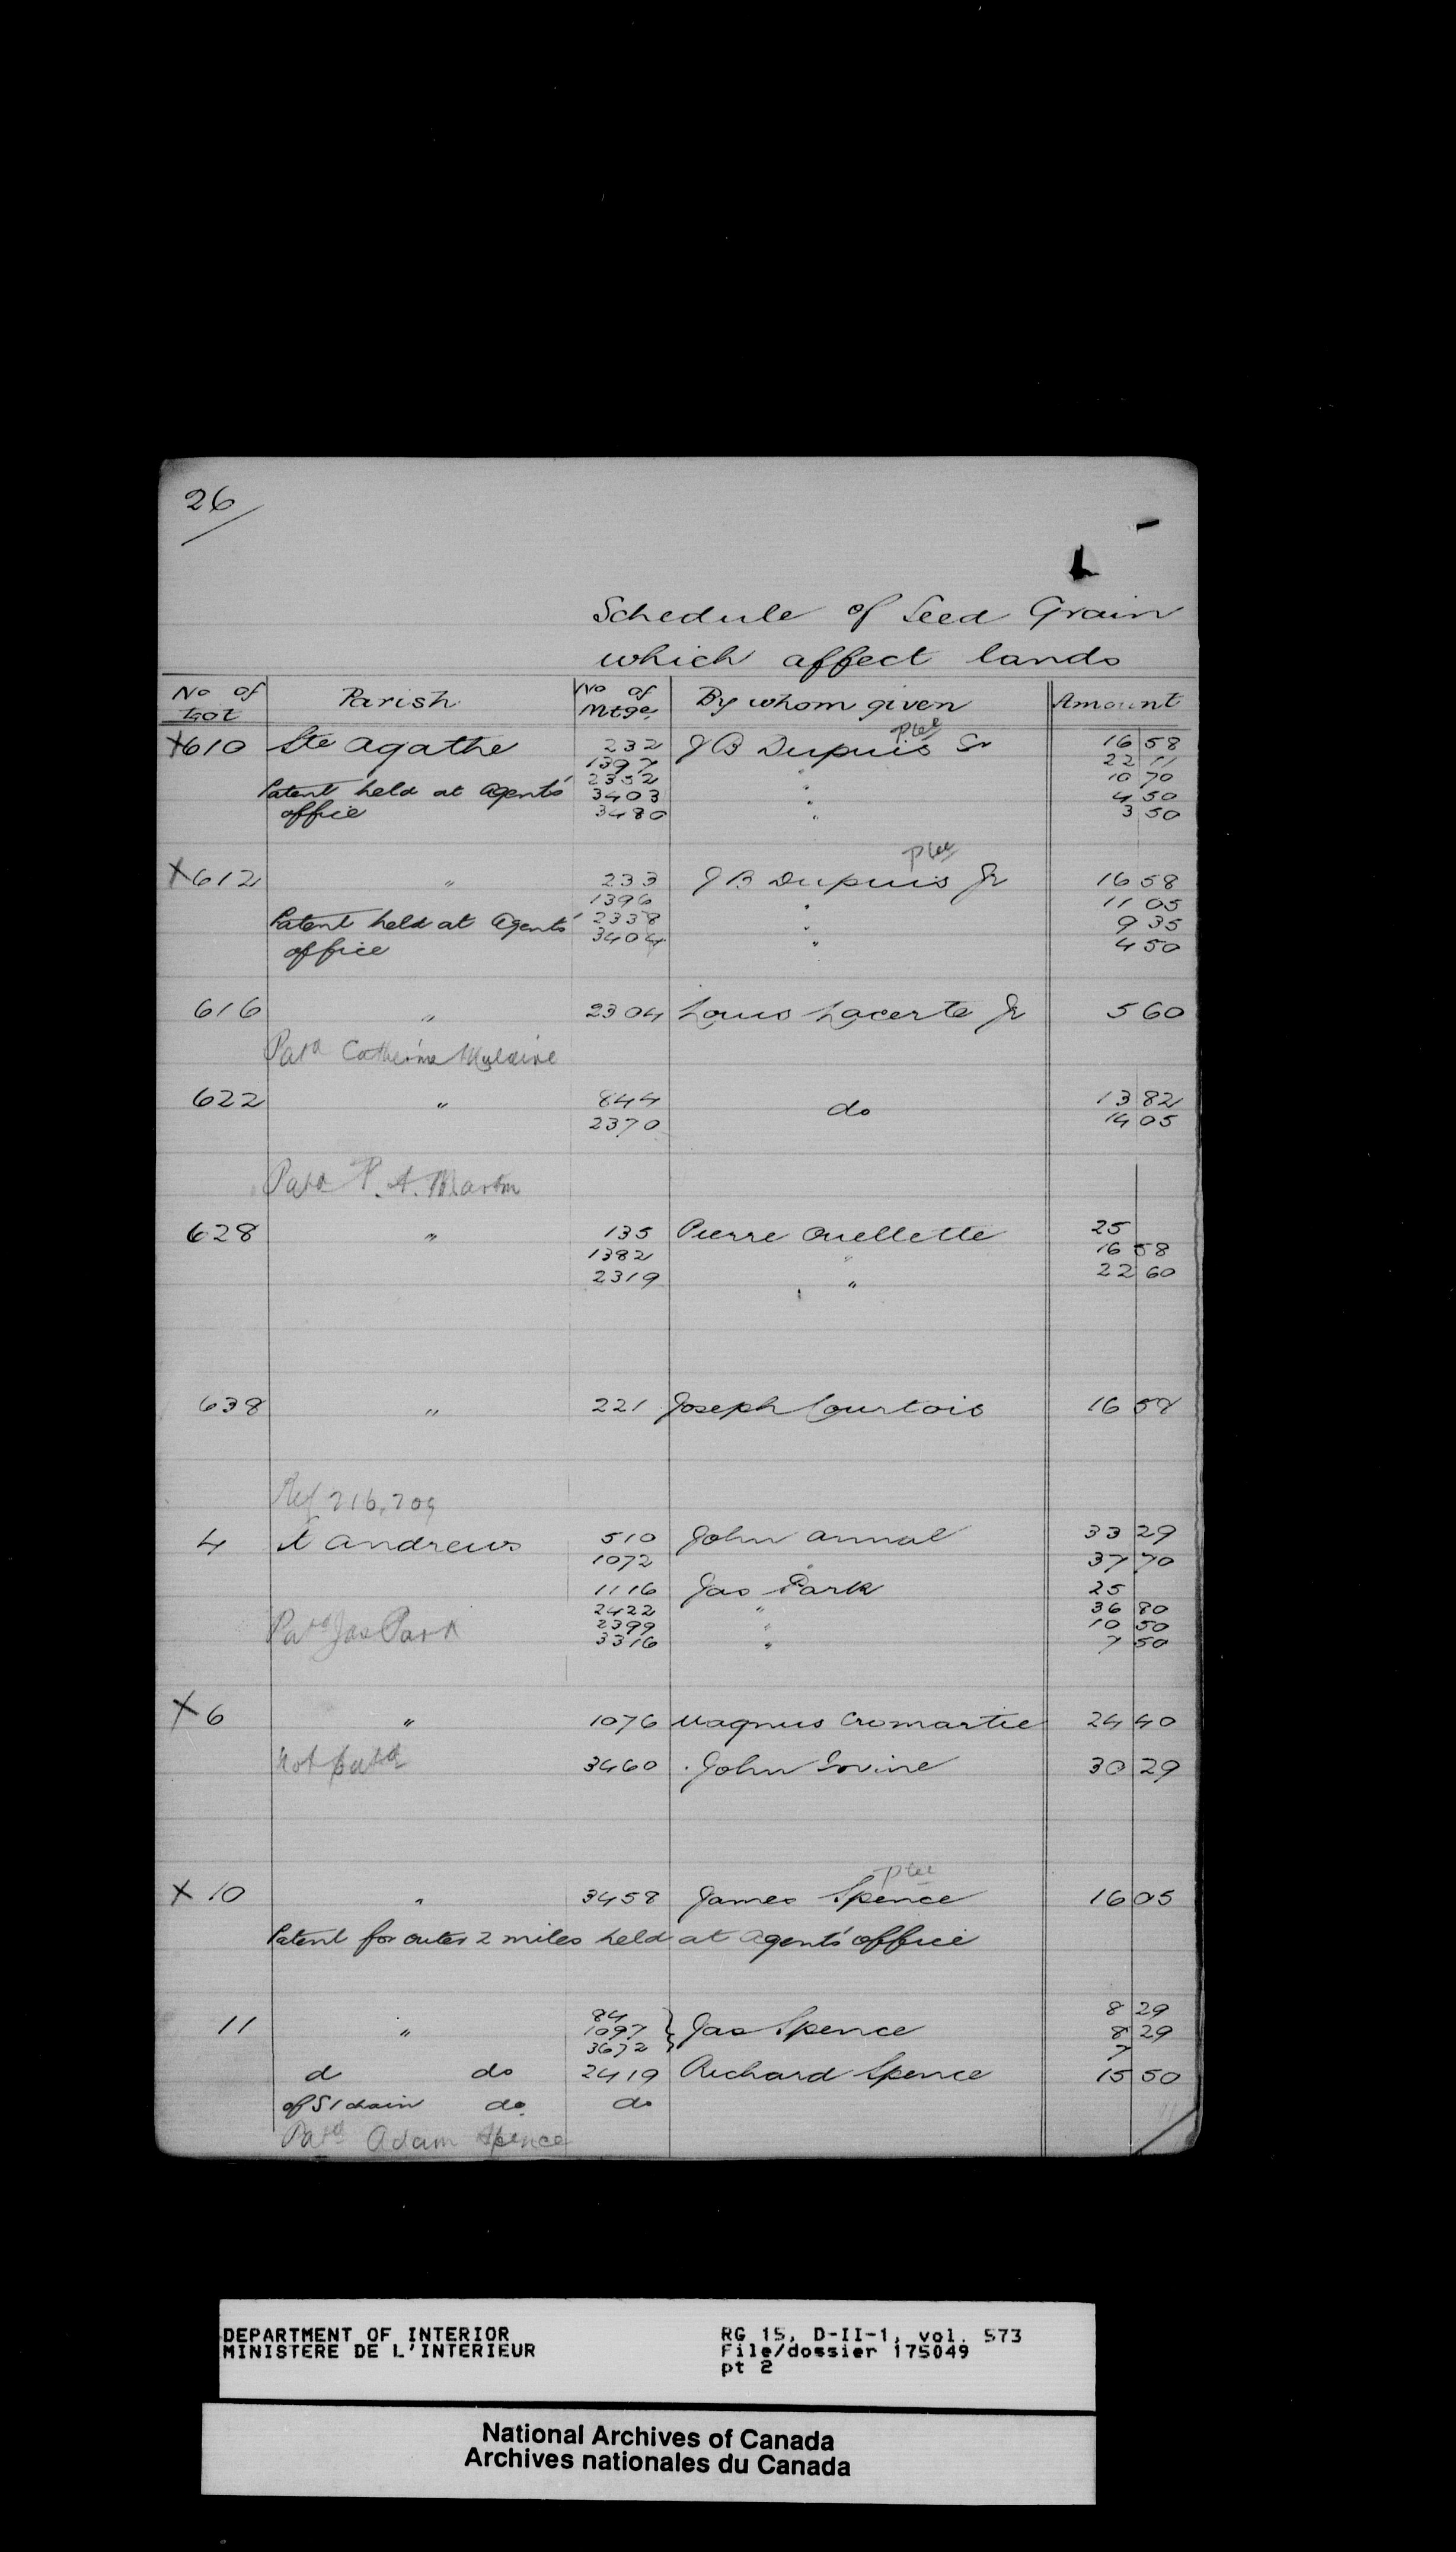 26
Schedule of Seed Grain
which affect lands
No of Lot Parish No of Mtge By whom given Amount
ptee
X 610 Ste Agathe 232 J B Dupuis Sr 16 58
1397 " 22 11
2352 " 10 70
Patent held at Agents' 3403 " 4 50
office 3480 " 3 50
ptee
X 612 " 233 J B Dupuis Jr 16 58
1396 " 11 05
Patent held at Agents' 2338 " 9 35
office 3404 " 4 50
616 " 2304 Louis Lacerte Jr 5 60
Patd Catherine
622 " 844 do 13 82
2370 14 05
Patd P. A. Martin
628 " 135 Pierre Ouellette 25
1382 " 16 58
2319 " 22 60
638 " 221 Joseph Courtois 16 58
Ref 216,709
4 St Andrews 510 John Annal 33 29
1072 " 37 70
1116 Jas Park 25
2422 " 36 80
2399 " 10 50
Patd Jas Park 3316 " 7 50
X 6 " 1076 Magnus Cromartie 24 40
Not patd 3460 John Irvine 30 29
ptee
X 10 " 3458 James Spence 16 05
Patent for outer 2 miles held at Agents' office
84 8 29
11 " 1097 } Jas Spence 8 29
3672 7
d do 2419 Richard Spence 15 50
of S 1 chain do do
Patd Adam Spence
DEPARTMENT OF INTERIOR
MINISTERE DE L'INTERIEUR
RG 15, D-II-1, vol. 573
File/dossier 175049
pt 2
National Archives of Canada
Archives nationales du Canada